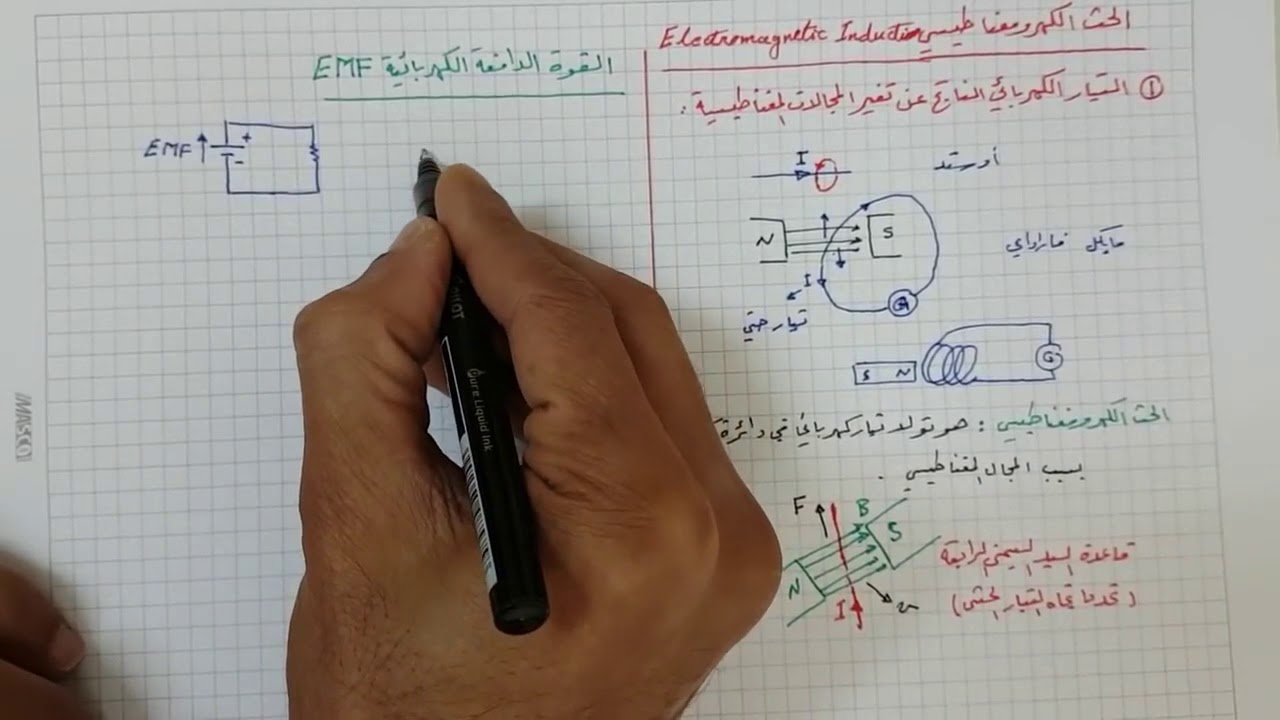 الحث الكهرومغناطيسي Electromagnetic Induction
① التيار الكهربائي الناتج عن تغير المجالات المغناطيسية :
I
أورستد
N
S
مايكل فاراداي
I
تيار حثي
G
S N
G
الحث الكهرومغناطيسي : هو تولد تيار كهربائي في دائرة
بسبب المجال المغناطيسي .
F
B
S
N
I
v
قاعدة اليد اليمنى الرابعة
(تحدد اتجاه التيار الحثي)
القوة الدافعة الكهربائية EMF
EMF
+
-
PILOT
Pure Liquid Ink